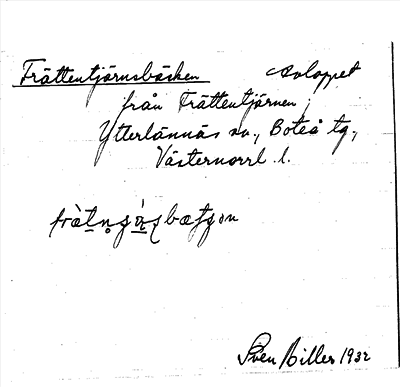 Trättentjärnsbäcken avloppet
från Trättentjärnen,
Ytterlännäs sn., Boteå tg,
Västernorrl. l.
Sven Biller 1932